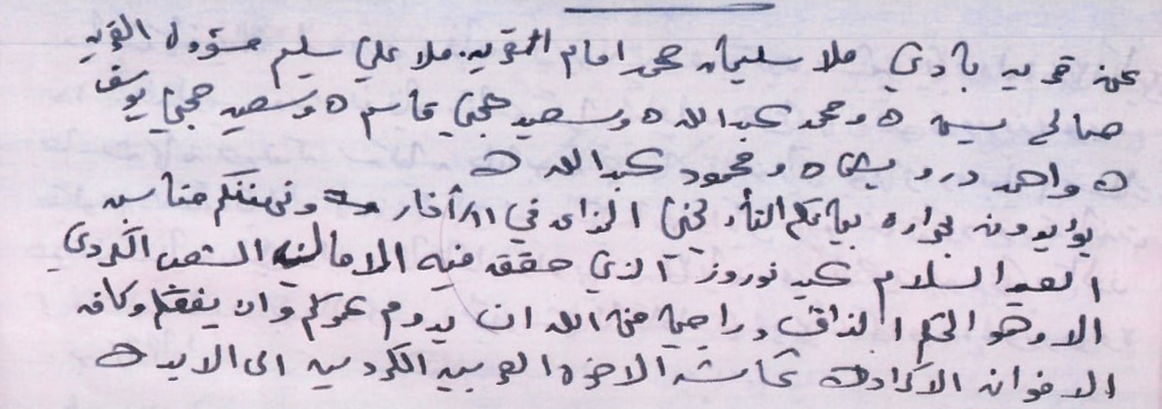 عن قرية بادي ملا سليمان محمد امام القريه ملا علي سليم مسؤول القريه
صالح يسين ه ومحمد عبدالله ه وسعيد حجي قاسم ه وسعيد حجي يوسف
ه واحمد درويش ه ومحمود عبدالله ه
يؤيدون بحراره بيانكم التأريخي الذاى في ١١/آذار وتهنئكم مناسبه
العيد السلام عيد نوروز الذي حققه فيه الامال الشعب الكردي
الا وهو الحكم الذاتي وراجين من الله ان يدوم عمركم وان يفقكم وكافه
الاخوان الاكراد ه عاشه الاخوه العربيه الكرديه الى الابد ه